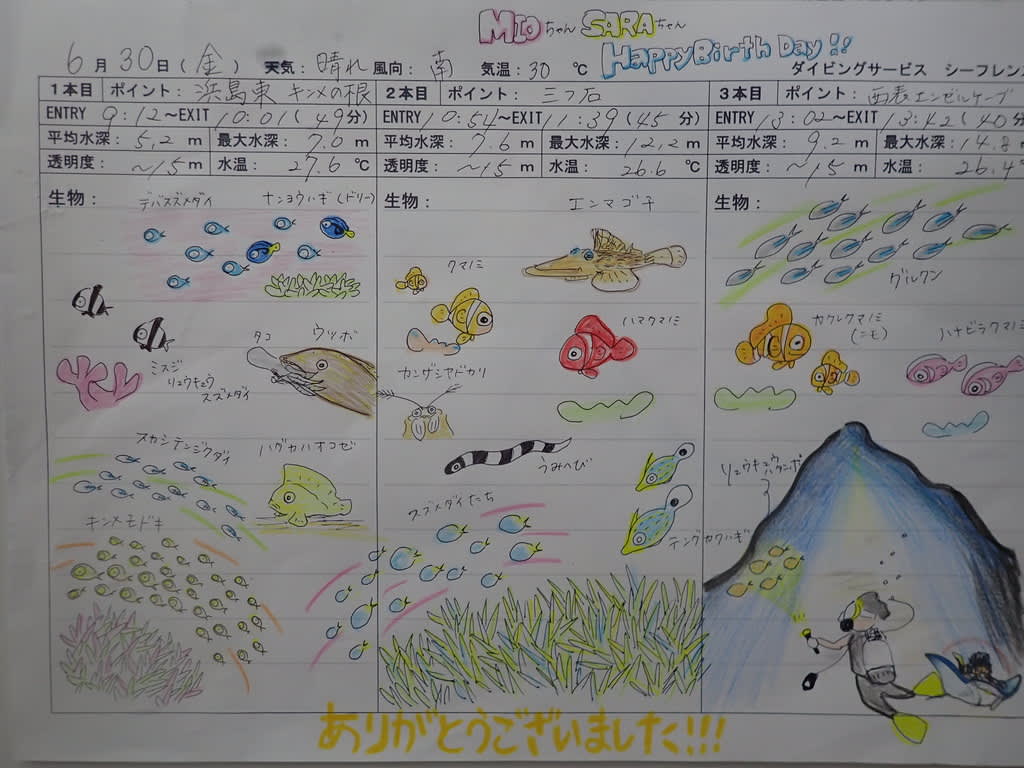 MIOちゃん SARAちゃん
Happy Birth Day!!
6月30日(金) 天気:晴れ 風向:南 気温:30 ℃
ダイビングサービス シーフレン
1本目 ポイント: 浜島東 キンメの根
ENTRY 9:12~EXIT 10:01(49分)
平均水深: 5.2 m 最大水深: 7.0 m
透明度: ~15 m 水温: 27.6 ℃
生物:
デバスズメダイ
ナンヨウハギ(ドリー)
ミスジ
リュウキュウ
スズメダイ
タコ
ウツボ
スカシテンジクダイ
ハダカハオコゼ
キンメモドキ
2本目 ポイント: 三ツ石
ENTRY 10:54~EXIT 11:39(45分)
平均水深: 7.6 m 最大水深: 12.2 m
透明度: ~15 m 水温: 26.6 ℃
生物:
エンマゴチ
クマノミ
ハマクマノミ
カンザシヤドカリ
うみへび
スズメダイたち
テングカワハギ
3本目 ポイント: 西表エンゼルケーブ
ENTRY 13:02~EXIT 13:42(40分
平均水深: 9.2 m 最大水深: 14.8 m
透明度: ~15 m 水温: 26.4
生物:
グルクン
カクレクマノミ
(ニモ)
ハナビラクマノミ
リュウキュウ
ハタンポ
ありがとうございました!!!